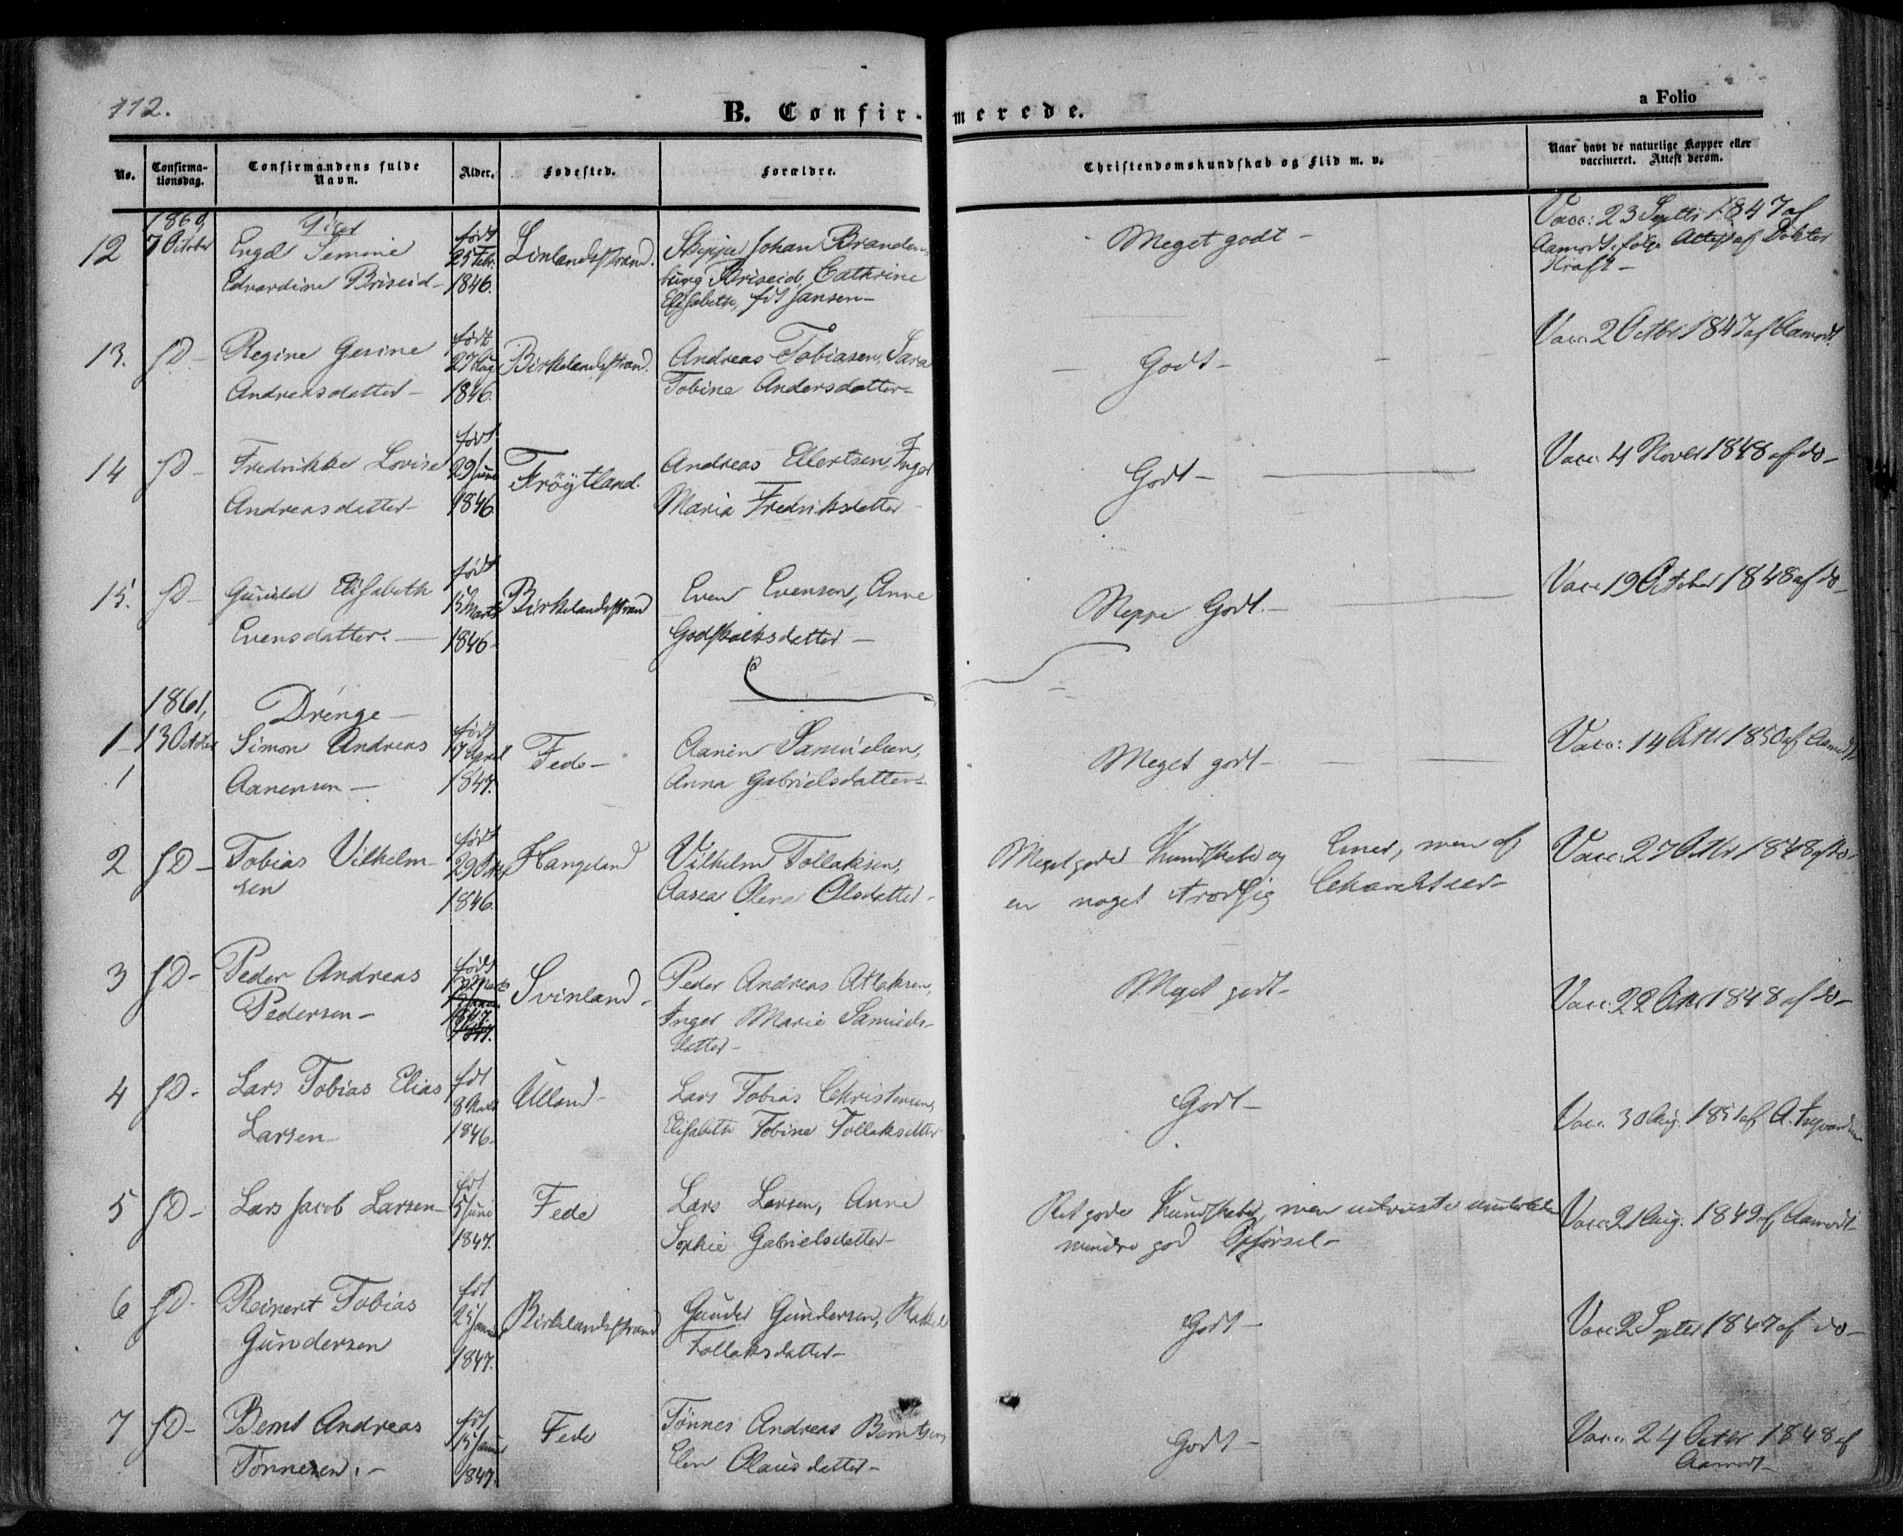 112.
B. Confirmerede.
a Folio
No. Confirmationsdag. Confirmandens fulde Navn. Alder. Fødested. Forældre. Christendomskundskab og Flid m. v. Naar havt de naturlige Kopper eller vaccineret. Attest derom.
1860, Piger
12 7 October Engel Semine født Linlandsstrand. Skipper Johan Branden- Meget godt - Vacc: 23 Septbr 1847 af
Edvardine Briseid - 25 Febr. burg Briseid, Cathrine Aamodt ifølge Attest af Doktor
1846. Elisabeth, fdt Jansen - Kraft -
13. do - Regine Gesine født Birkelandsstrand. Andreas Tobiasen, Sara Godt - Vacc: 2 Octbr 1847 af Aamodt.
Andreasdatter - 27 Aug Tobine Andersdatter -
1846.
14 do - Fredrikke Lovise født Frøytland. Andreas Ellertsen, Inger Godt - Vacc: 4 Novbr 1848 af do -
Andreasdatter - 29 Juni Maria Fredriksdatter -
1846
15. do - Gunild Elisabeth født Birkelandsstrand Even Evensen, Anne Neppe Godt. - Vacc 19 October 1848 af do -
Evensdatter. - 15 Marts Godskalksdatter -
1846 -
1861, Drenge -
1 - 13 October Simon Andreas født Fede - Aanen Samuelsen, Meget godt - Vacc: 14 Octbr 1850 af Aamodt
1 Aanensen - 17 April Anna Gabrielsdatter -
1847.
2 do - Tobias Vilhelm- født Hangeland Vilhelm Tollaksen, Meget gode Kundskaber og Evner, men af Vacc: 27 Octbr 1848 af do -
sen 29 Aasea Olene Olsdatter - en noget trodsig Charakteer -
1846.
3 do - Peder Andreas født Svinland - Peder Andreas Atlaksen, Meget godt - Vacc: 22 Octbr 1848 af do -
Pedersen - 1847. Inger Marie Samuels-
datter -
4 do - Lars Tobias Elias fdt Ulland - Lars Tobias Christensen, Godt - Vacc. 30 Aug. 1851 af A.
Larsen - 8 1846 - Elisabeth Tobine Tollaksdatter
5 do - Lars Jacob Larsen - fdt Fede Lars Larsen, Anne Ret gode Kundskaber, men udviste Vacc: 21 Aug. 1849 af Aamodt -
5 Juni Sophie Gabrielsdatter - mindre god Opførsel -
1847.
6 do - Reinert Tobias fdt Birkelandsstrand Gunder Gundersen, Rakel Godt - Vacc: 2 Septbr 1847 af do -
Gundersen Januar Tollaksdatter -
1847.
7 do - Bernt Andreas fdt Fede Tønnes Andreas Berntsen, Godt - Vacc: 24 Octbr 1848 af
Tønnesen. - 15 Januar Elen Olausdatter - Aamodt -
1847.